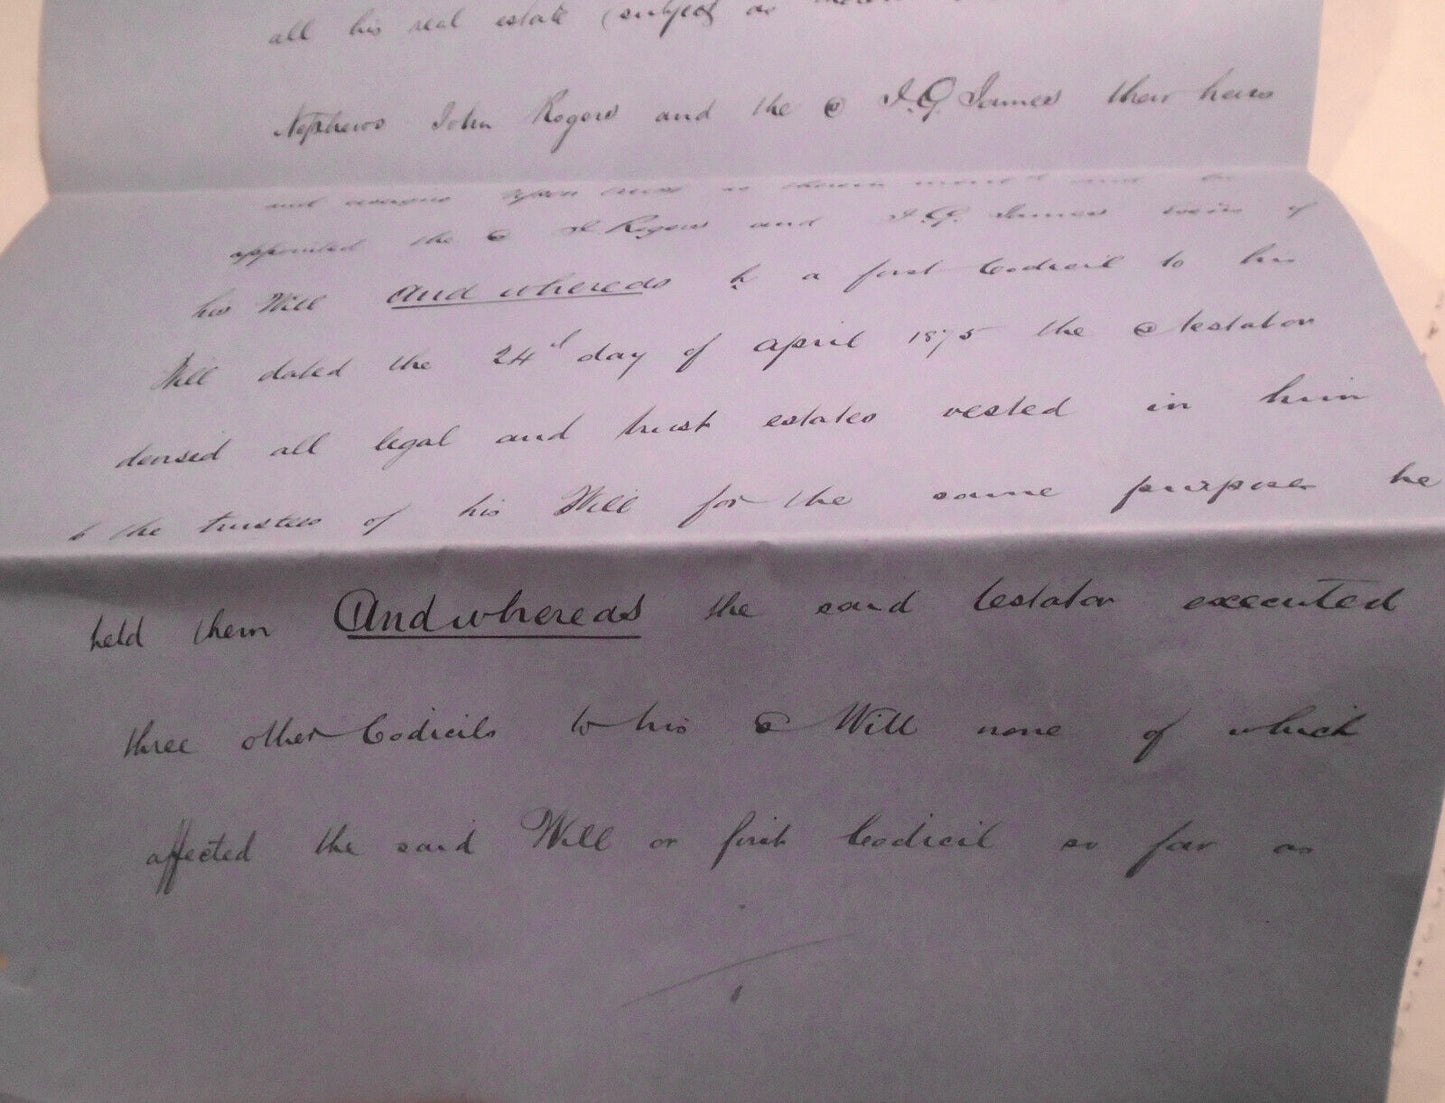 all his real estate (subject as
Nephews John Rogers and the @ I. G. James their heirs
and assigns upon trust as therein mentd and he
appointed the @ J. Rogers and I. G. James of
his Will And whereas by a first Codicil to his
Will dated the 24th day of april 1875 the @ testator
devised all legal and trust estates vested in him
to the trustees of his Will for the same purpose he
held them And whereas the said testator executed
three other Codicils to his @ Will none of which
affected the said Will or first Codicil so far as